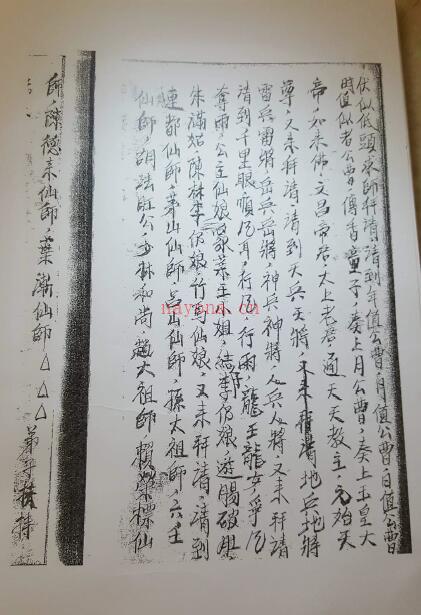 伏似低頭求師拜請請到年值公曹月值公曹日值公曹
時值似者公曹傳香童子奏上月公曹奏上玉皇大
帝如來佛文昌帝君太上老君通天教主元始天
尊又來拜請請到天兵天將又來拜請地兵地將
雷兵雷將岳兵岳將神兵神將人兵人將又來拜請
請到千里眼順風耳行風行雨龍王龍女爭風
奪雨公主仙娘 結李仙娘 破肚
朱滿姑陳林李仍娘竹馬仙娘又來拜請請到
連都仙師茅山仙師呂山仙師孫太祖師六壬
仙師胡法旺公少林和尚趙大祖師賴榮標仙
師陳德來仙師葉 仙師△△△ 弟子 持
nayona.cn